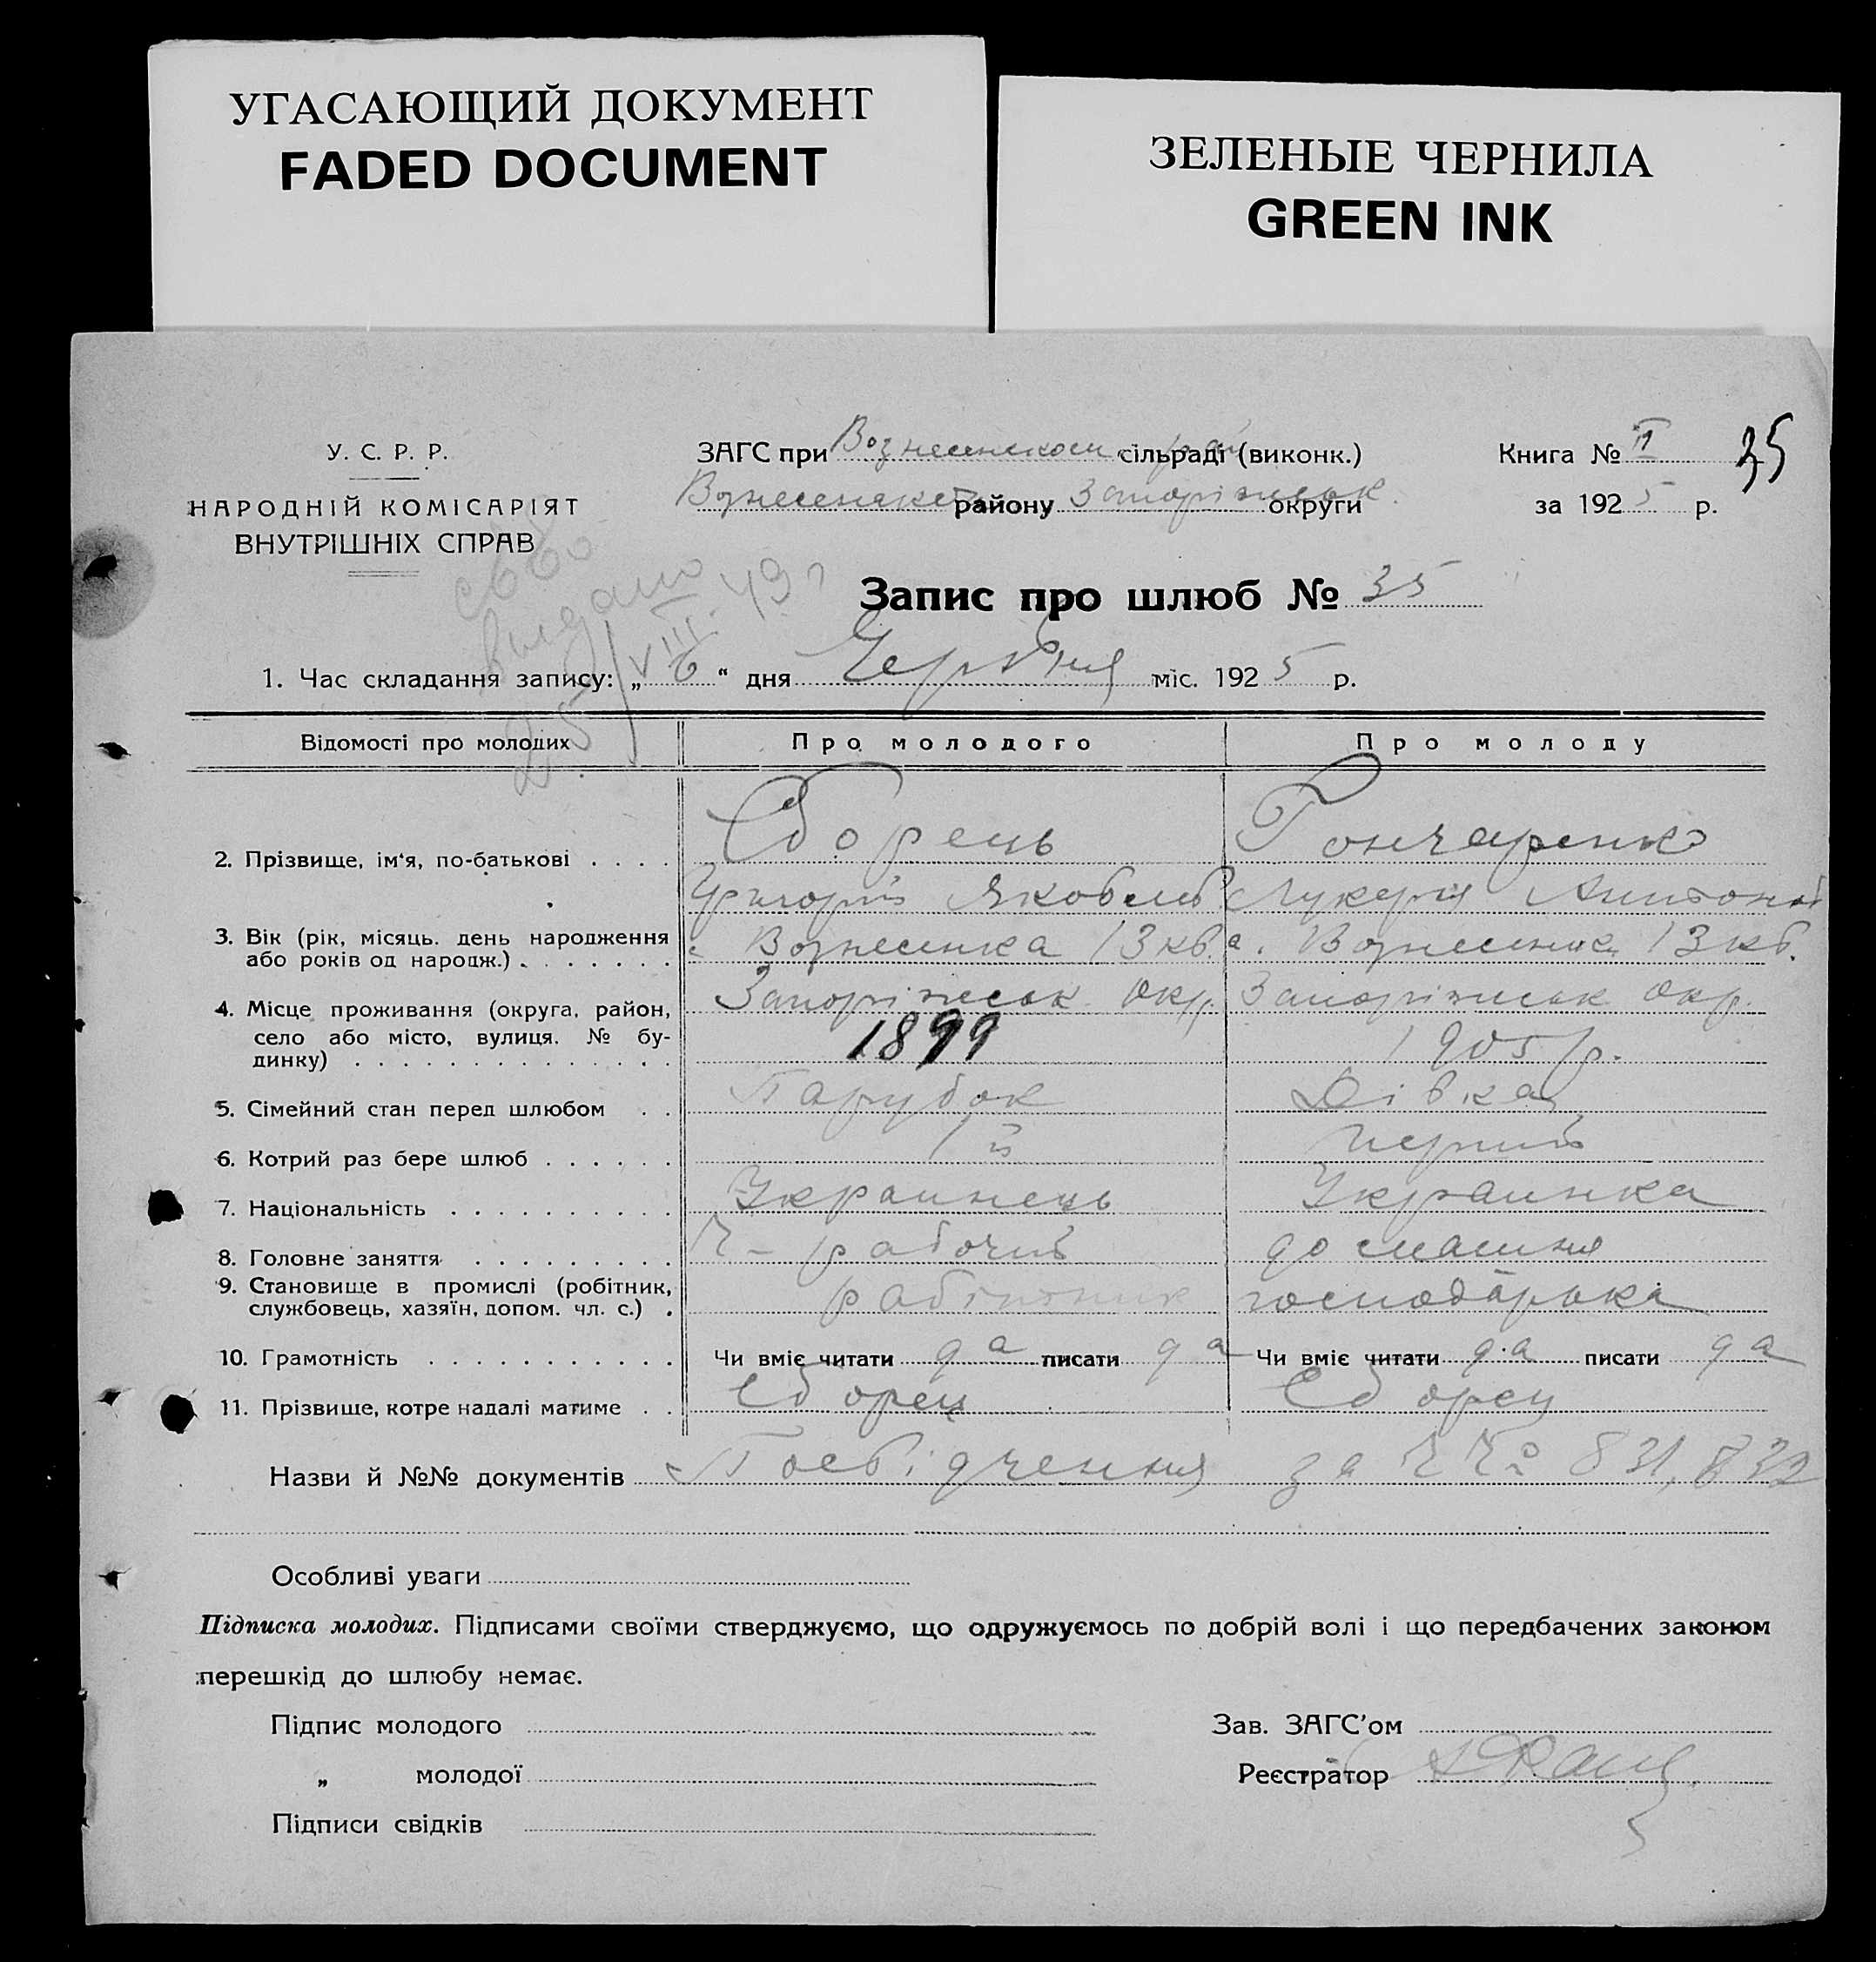 УГАСАЮЩИЙ ДОКУМЕНТ
FADED DOCUMENT
ЗЕЛЕНЫЕ ЧЕРНИЛА
GREEN INK
У. С. Р. Р.
НАРОДНІЙ КОМІСАРІЯТ
ВНУТРІШНІХ СПРАВ
ЗАГС при Вознесенском сільраді (виконк.)
району Запоріжськ. округи
Книга № II 35
за 1925 р.
выдано
25/VIII.49
Запис про шлюб № 35
1. Час складання запису: „ 6 “ дня Червня міс. 1925 р.
Відомості про молодих Про молодого Про молоду
2. Прізвище, ім'я, по-батькові . . . . Сборець Гончаренко
Григорій Яковлев Лукерія Антонов
3. Вік (рік, місяць. день народження с. Вознесенка 13 кв. с. Вознесенка 13 кв.
або років од народж.) . . . . . . .
4. Місце проживання (округа, район, Запоріжськ окр. Запоріжськ окр.
село або місто, вулиця. № бу-
динку) . . . . . . . . . . . . . . 1899 1905 р.
5. Сімейний стан перед шлюбом . . Парубок Дівка
6. Котрий раз бере шлюб . . . . . . 1й перший
7. Національність . . . . . . . . . . Украинець Украинка
8. Головне заняття . . . . . . . . . Ч- рабочий домашня
9. Становище в промислі (робітник,
службовець, хазяїн, допом. чл. с.) . рабітник господарька
10. Грамотність . . . . . . . . . . . Чи вміє читати да писати да Чи вміє читати да писати да
11. Прізвище, котре надалі матиме . . Сборец Сборец
Назви й №№ документів Посвідчення за №№ 831, 832
Особливі уваги
Підписка молодих. Підписами своїми стверджуємо, що одружуємось по добрій волі і що передбачених законом
перешкід до шлюбу немає.
Підпис молодого
Зав. ЗАГС'ом
„ молодої
Реєстратор
Підписи свідків